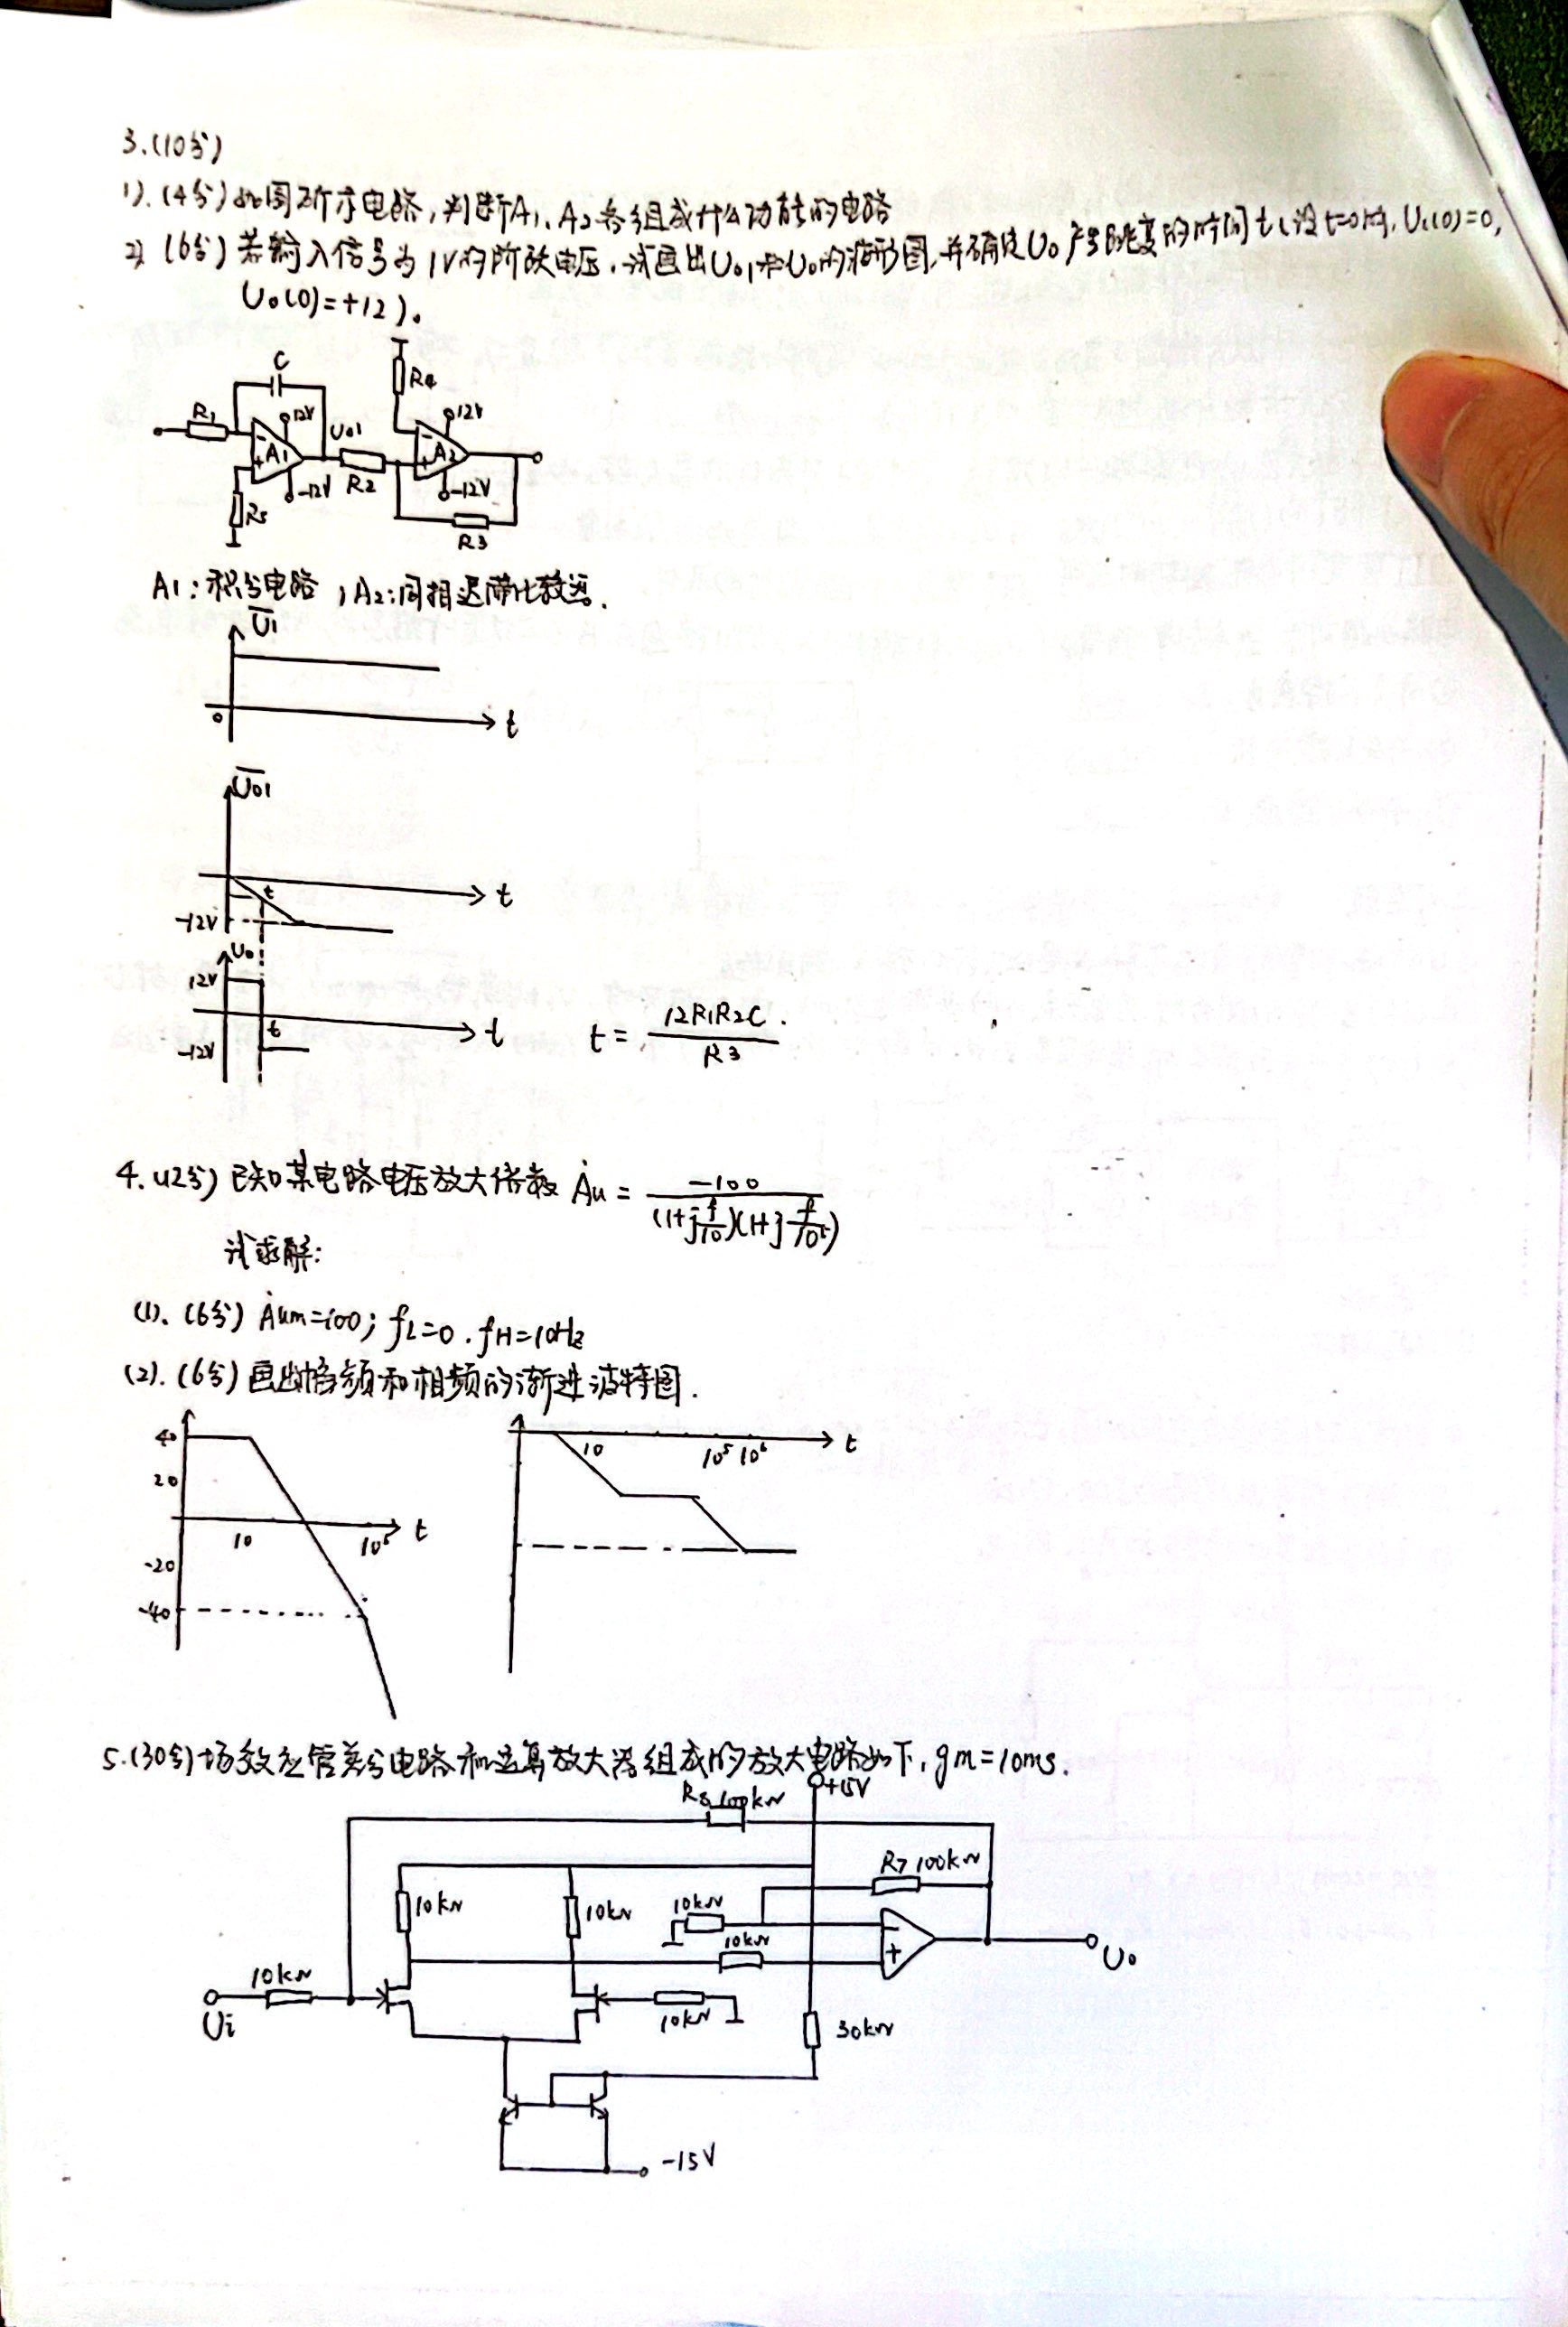 3.(10分)
1).(4分)如图所示电路,判断A1、A2各组成什么功能的电路
2) (6分) 若输入信号为1V的阶跃电压,试画出Uo1和Uo的波形图,并确定Uo产生跳变的时间t(设t=0时,Uc(0)=0,
Uo(0)=+12).
C
R4
R1
12V
Uo1
12V
A1
A2
-12V
R2
-12V
R5
R3
A1:积分电路 ,A2:同相迟滞比较器.
U1
0
t
Uo1
t
t
-12V
Uo
12V
t
t
-12V
t= 12R1R2C / R3
4.(12分) 已知某电路电压放大倍数 Au = -100 / (1+j f/10)(1+j f/10⁵)
试求解:
(1).(6分) Aum=100; fL=0. fH=10Hz
(2).(6分)画出幅频和相频的渐进波特图.
40
20
10
10⁵
t
-20
-40
10
10⁵ 10⁶
t
5.(30分)场效应管差分电路和运算放大器组成的放大电路如下,gm=10ms.
+15V
100kΩ
R7 100kΩ
10kΩ
10kΩ
10kΩ
10kΩ
-
+
Uo
10kΩ
Ui
10kΩ
30kΩ
-15V